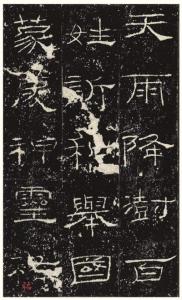 天雨降澍百
姓訢和舉國
蒙慶神靈